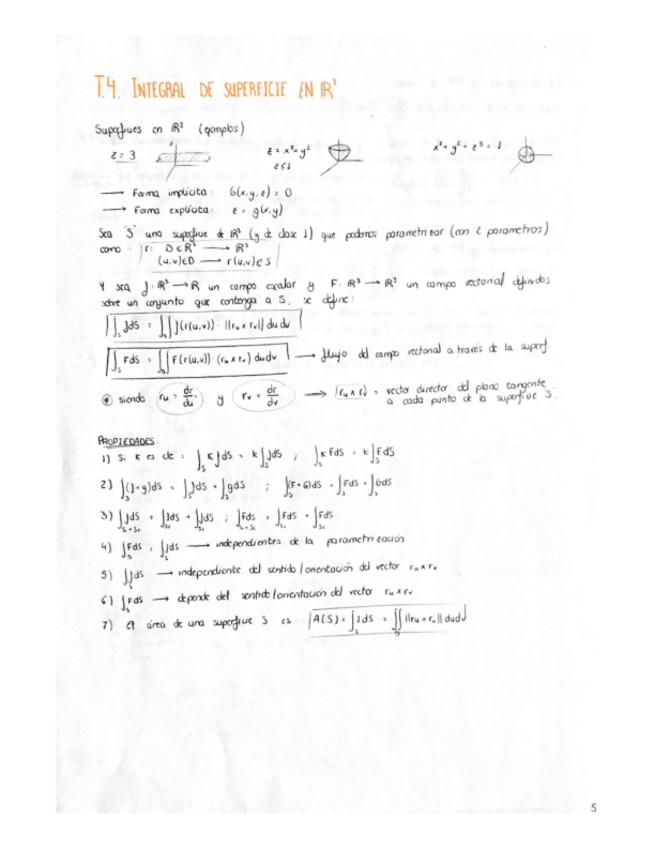 T.4. INTEGRAL DE SUPERFICIE EN ℝ³
Superficies en ℝ³ (ejemplos)
z = 3
z = x² + y²
z ≤ 1
x² + y² + z² = 1
⟶ Forma implícita: G(x,y,z) = 0
⟶ Forma explícita: z = g(x,y)
Sea "S" una superficie de ℝ³ (y de clase 1) que podemos parametrizar (con 2 parámetros)
como r: D ⊂ ℝ² ⟶ ℝ³
(u,v) ∈ D ⟶ r(u,v) ∈ S
Y sea f: ℝ³ ⟶ ℝ un campo escalar y F: ℝ³ ⟶ ℝ³ un campo vectorial definidos
sobre un conjunto que contenga a S, se define:
∫_S f dS = ∬_D f(r(u,v)) · ||r_u x r_v|| du dv
∫_S F dS = ∬_D F(r(u,v)) · (r_u x r_v) du dv ⟶ flujo del campo vectorial a través de la superf.
siendo r_u = dr/du y r_v = dr/dv ⟹ r_u x r_v = vector director del plano tangente
a cada punto de la superficie S.
PROPIEDADES:
1) Si K es cte: ∫_S K f dS = K ∫_S f dS ; ∫_S K F dS = K ∫_S F dS
2) ∫_S (f+g) dS = ∫_S f dS + ∫_S g dS ; ∫_S (F+G) dS = ∫_S F dS + ∫_S G dS
3) ∫_{S₁+S₂} f dS = ∫_{S₁} f dS + ∫_{S₂} f dS ; ∫_{S₁+S₂} F dS = ∫_{S₁} F dS + ∫_{S₂} F dS
4) ∫_S F dS , ∫_S f dS ⟶ independientes de la parametrización
5) ∫_S f dS ⟶ independiente del sentido/orientación del vector r_u x r_v
6) ∫_S F dS ⟶ depende del sentido/orientación del vector r_u x r_v
7) El área de una superficie S es: A(S) = ∫_S 1 dS = ∬_D ||r_u x r_v|| du dv
5